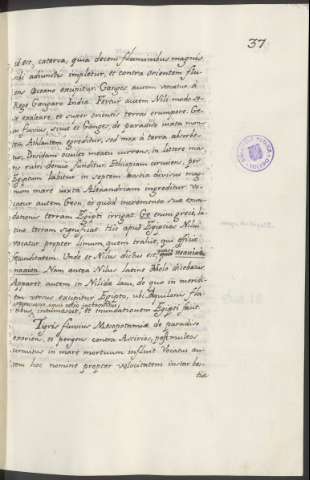 37
id est, caterva, quia decem fluminibus magnis
sibi adiunctis impletur, et contra orientem flu
ens Oceano excipitur. Ganges autem vocatus à
Rege Gangaro India. Fertur autem Nili modo se
exaltare, et super orientis terras erumpere. Ge
on fluvius, exiens de paradiso iuxta mon
tem Athlantem egreditur, sed mox à terra absorbe
tur,
mari denuo funditur Ethiopiam circuiens, per
Egiptum labitur in septem hostia divisus mag
num mare iuxta Alexandriam ingreditur. Vo
catur autem Geon, eo quod incremento suæ exun
dationis terram Egipti irrigat. Ge enim grecè, la
tine terram significat. Hic apud Egiptios Nilus
vocatur propter limum, quem trahit, qui efficit
fœcunditatem. Unde et Nilus dictus est,
Nam antea Nilus latine Melo dicebatur
Apparet autem in Nilide lacu, de quo in meridi
em versus excipitur Egipto, ubi Aquilonis fla
tibus, intumescit, et inundationem Egipti facit
Tigris fluvius Mesopotamiæ de paradiso
exoriens, et pergens contra Assirios, post multos
circuitus in mare mortuum influit. Vocatus au
tem hoc nomine propter velocitatem instar bes
tiæ